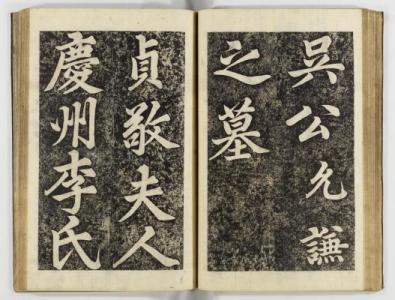 吳公允謙
之墓
貞敬夫人
慶州李氏